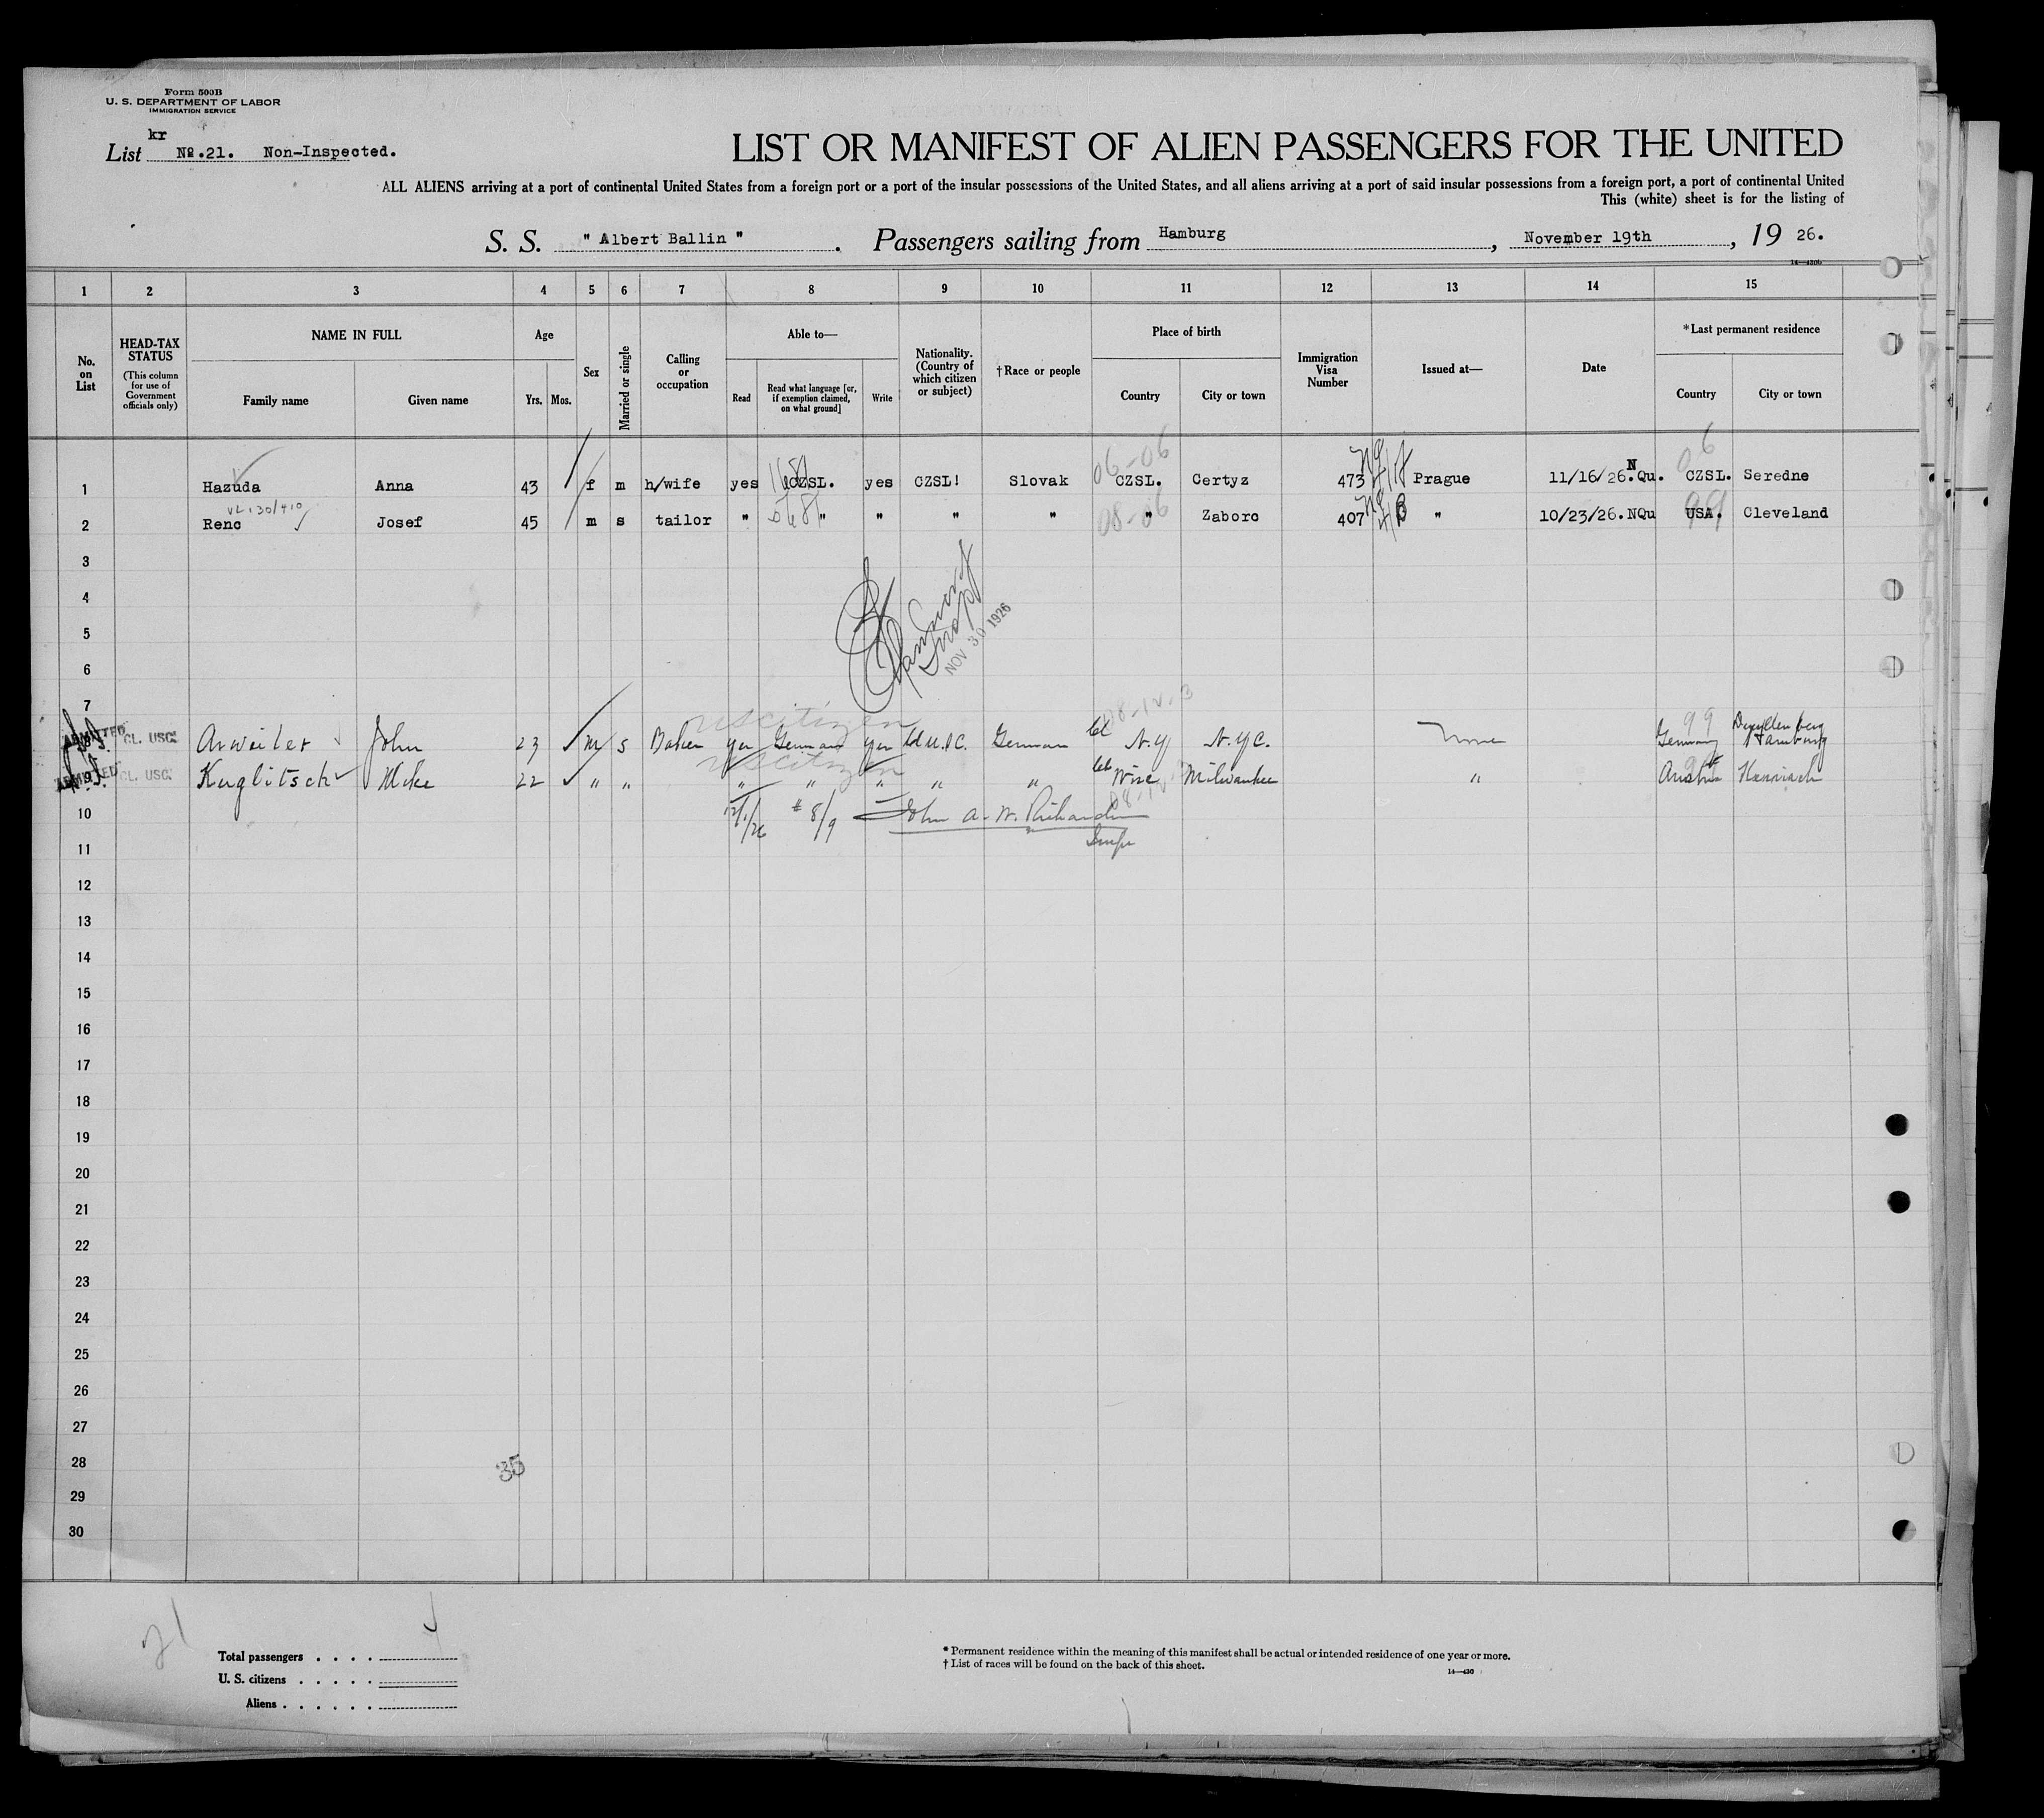 Form 500B
U. S. DEPARTMENT OF LABOR
IMMIGRATION SERVICE
kr
List No.21. Non-Inspected.
LIST OR MANIFEST OF ALIEN PASSENGERS FOR THE UNITED
ALL ALIENS arriving at a port of continental United States from a foreign port or a port of the insular possessions of the United States, and all aliens arriving at a port of said insular possessions from a foreign port, a port of continental United
This (white) sheet is for the listing of
S. S. " Albert Ballin " . Passengers sailing from Hamburg , November 19th , 19 26.
14—430b
1 2 3 4 5 6 7 8 9 10 11 12 13 14 15
No. on List
HEAD-TAX STATUS
(This column for use of Government officials only)
NAME IN FULL
Family name Given name
Age
Yrs. Mos.
Sex
Married or single
Calling or occupation
Able to—
Read
Read what language [or, if exemption claimed, on what ground]
Write
Nationality. (Country of which citizen or subject)
†Race or people
Place of birth
Country City or town
Immigration Visa Number
Issued at—
Date
*Last permanent residence
Country City or town
06-06 06
1 Hazuda Anna 43 f m h/wife yes CZSL. yes CZSL! Slovak CZSL. Certyz 473 Prague 11/16/26.NQu. CZSL. Seredne
08-06 99
2 Reno Josef 45 m s tailor " " " " " " Zaboro 407 " 10/23/26.NQu USA. Cleveland
3
4
5
6
NOV 30 1926
7
US citizen 99
8 ADMITTED CL. USC. Arweiler John 23 m s Baker yes German yes German N.Y. N.Y.C. None Germany Hamburg
US citizen
9 ADMITTED CL. USC. Kuglitsch Mike 22 " " " " " " " Wisc Milwaukee " Austria
10 12/1/26 # 8/9 John A. W. Richardson
11 Insp
12
13
14
15
16
17
18
19
20
21
22
23
24
25
26
27
28 35
29
30
21
Total passengers . . . .
U. S. citizens . . . . .
Aliens . . . . . .
* Permanent residence within the meaning of this manifest shall be actual or intended residence of one year or more.
† List of races will be found on the back of this sheet.
14—430